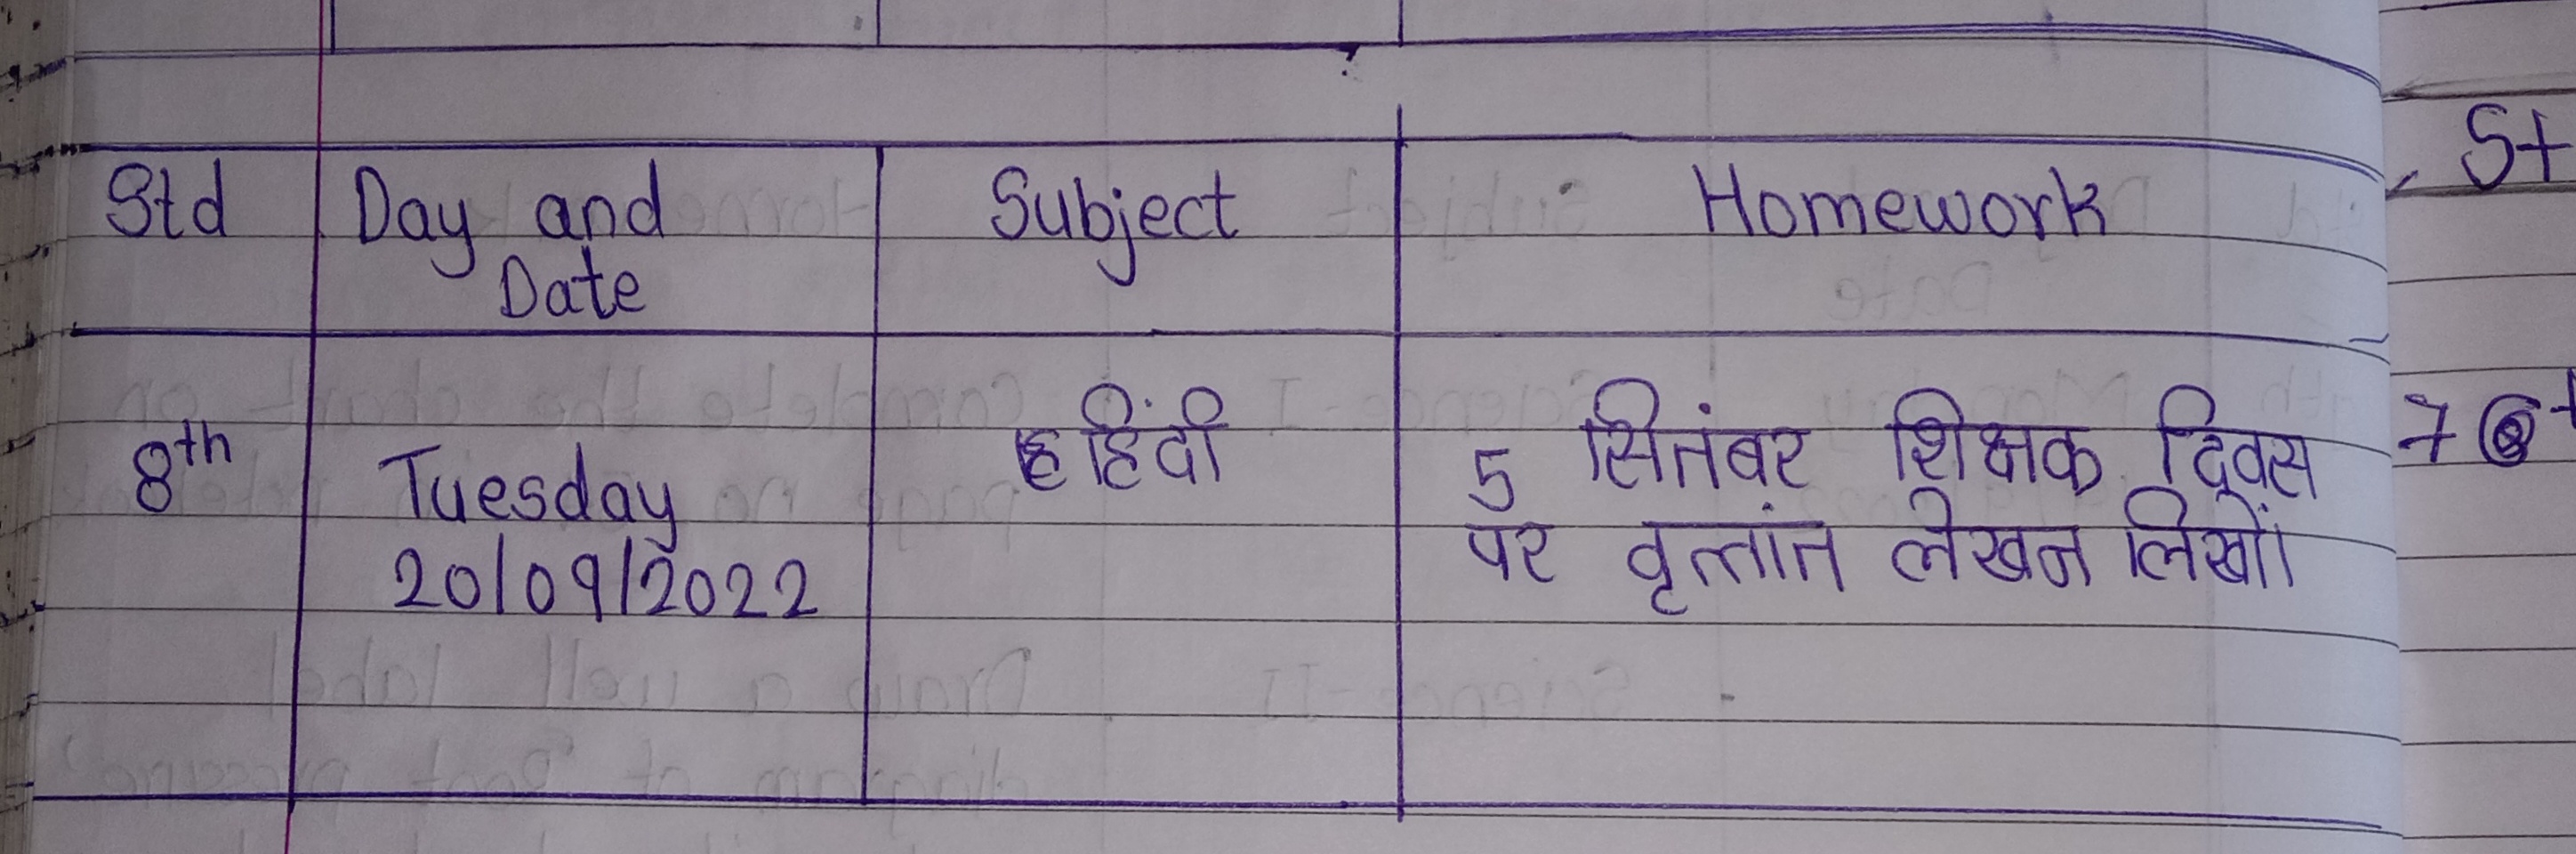 Std Day and Subject Homework
Date
8th Tuesday हिंदी 5 सितंबर शिक्षक दिवस
20/09/2022 पर वृत्तांत लेखन लिखों।
St
7